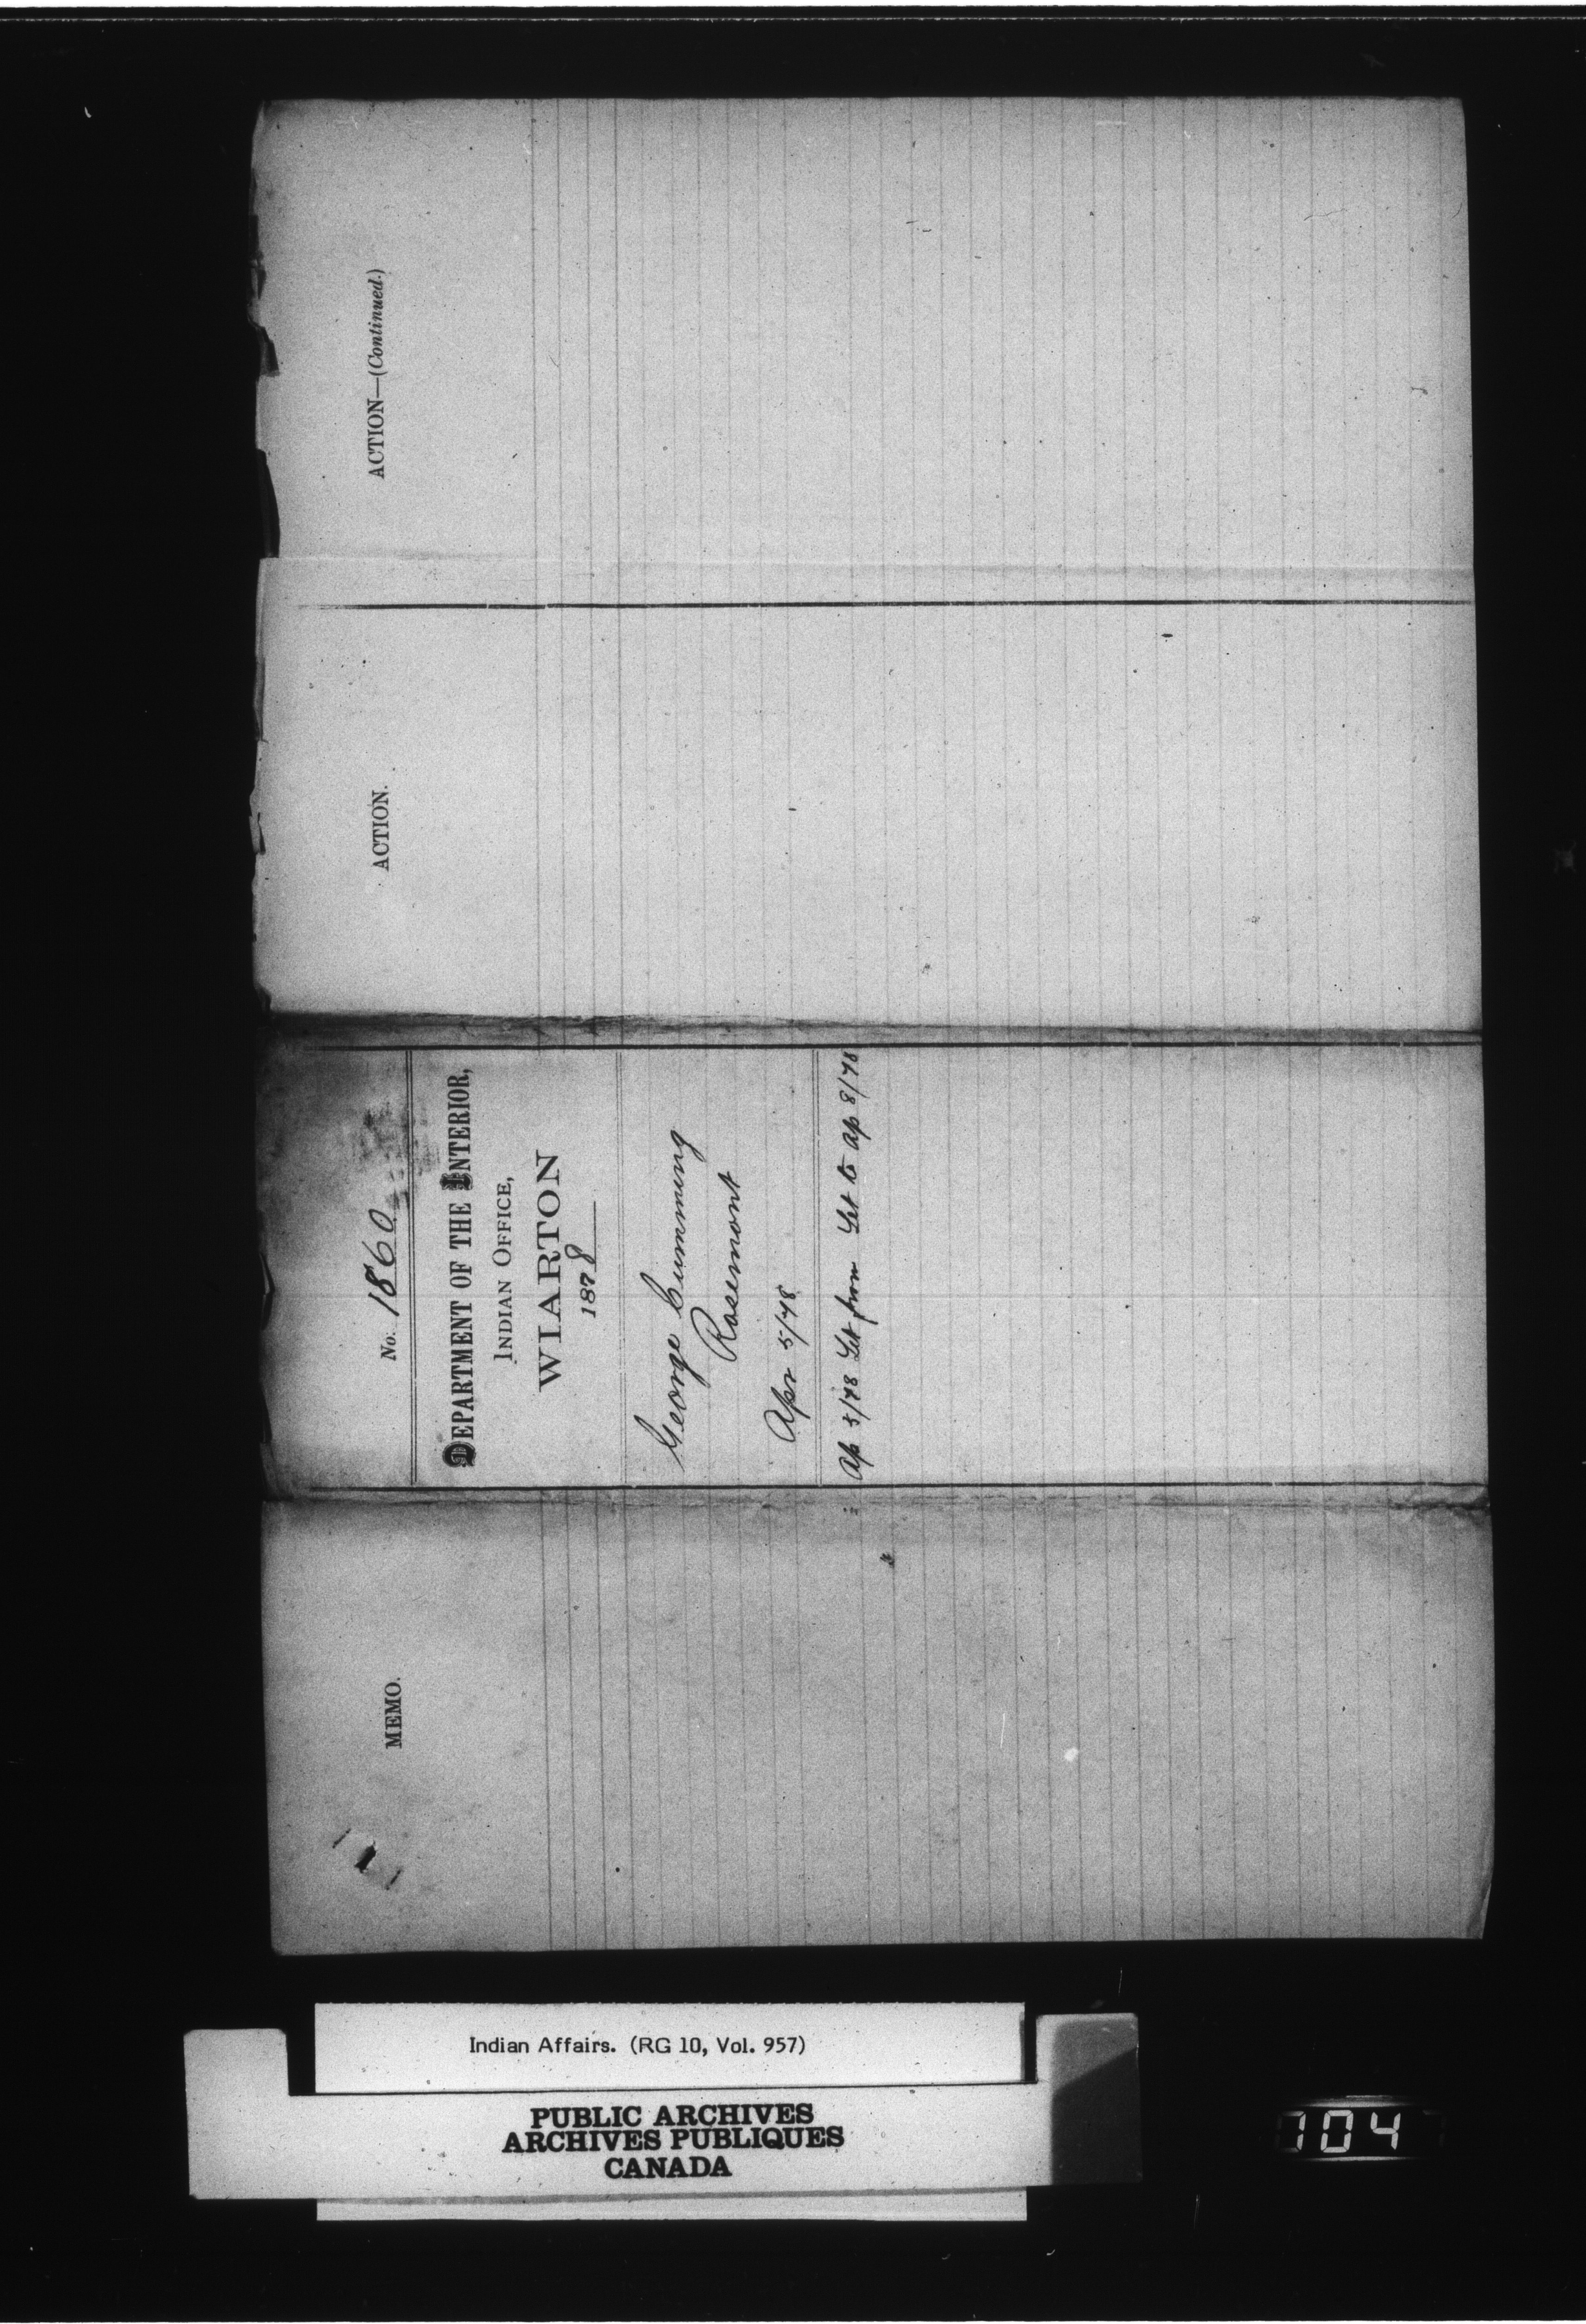 MEMO.
No. 1860
DEPARTMENT OF THE INTERIOR,
INDIAN OFFICE,
WIARTON
1878
George Cumming
Rosemont
Apr 5/78
Ap 5/78 Let from Let to Ap 8/78
ACTION.
ACTION—(Continued.)
Indian Affairs. (RG 10, Vol. 957)
PUBLIC ARCHIVES
ARCHIVES PUBLIQUES
CANADA
104